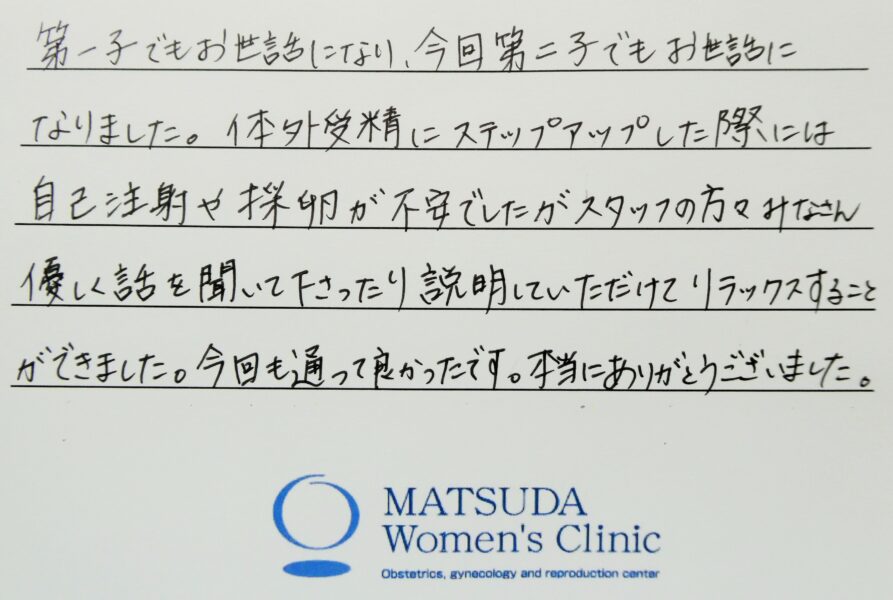 第一子でもお世話になり、今回第二子でもお世話に
なりました。体外受精にステップアップした際には
自己注射や採卵が不安でしたがスタッフの方々みなさん
優しく話を聞いて下さったり説明していただけてリラックスすること
ができました。今回も通って良かったです。本当にありがとうございました。
MATSUDA
Women's Clinic
Obstetrics, gynecology and reproduction center